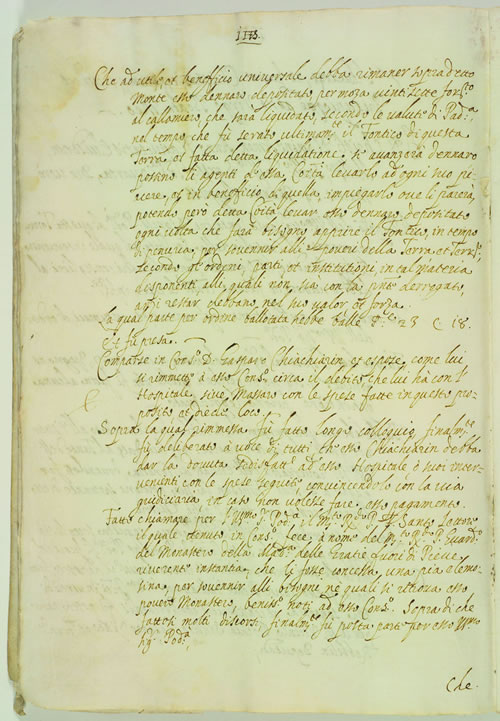 Che ad utile et benefficio universale debba rimaner sopradetto
Monte esso dennaro depositato per moza vintisette for.to
al callamiero che sarà liquidato, secondo le valute di Pad.a
nel tempo che fu serato ultimam. il Fontico di questa
Terra, et fatta detta liquidatione, se avanzerà dennaro
possino li agenti d'essa Co.ità levarlo ad ogni suo pia
cere, et in beneficio di quella impiegarlo ove li parerà,
potendo però detta Co.ità levar esso dennaro depositato
ogni volta che farà bisogno apprire il Fontico, in tempo
di penuria, per sovvenir alli poveri della Terra, et
secondo gl'ordeni, parti, et institutioni, in tal materia
disponenti, alli quali non sia con la pnte derrogato,
anzi restar debbano nel suo valor, et forza.
La qual parte per ordine ballotata hebbe balle 23 C. 18.
et fù presa.
Comparse in Cons.o D. Gasparo Chiachiarin et espose, come lui
si rimette à esso Cons.o circa il debito che lui hà con l'
Hospitale, sive Massaro con le spese fatte in questo pro-
posito
Sopra la qual rimmessa fù fatto longo colloquio, finalm.te
fù deliberato à voce di tutti che esso Chiachiarin debba
dar la dovuta ad esso Hospitale è suoi inter-
venienti con le spese seguite convincendolo con la via
giudiciaria in caso non volesse fare esso pagamento.
Fatto chiamare per l' Ill.mo S.r Pod.a il M.to R.do P. Santo
il quale venuto in Cons.o fece à nome del P. Guard.o
del Monastero della Mad.a delle Gratie fuori di Pieve,
riverente instantia, che li fosse concessa, una pia elemo-
sina, per sovvenir alli bisogni ne quali si ritrova esso
povero Monastero, beniss.o noti ad esso Cons.o Sopra di che
fattosi molti discorsi, finalm.te fù posta parte per esso Ill.mo
Pod.a
Che